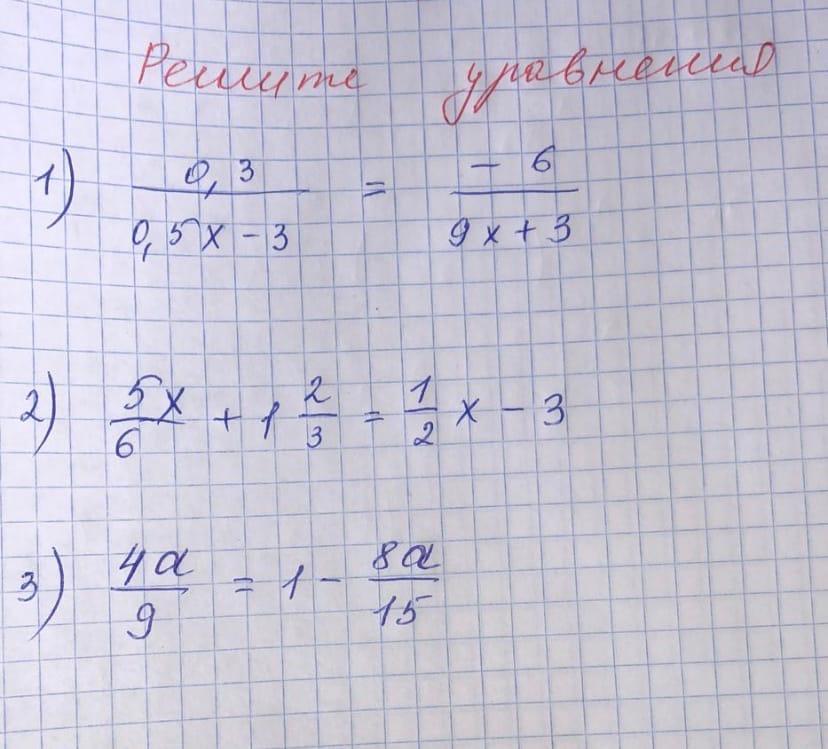 Решите уравнения
1) 0,3 / (0,5x - 3) = - 6 / (9x + 3)
2) 5x/6 + 1 2/3 = 1/2 x - 3
3) 4a/9 = 1 - 8a/15